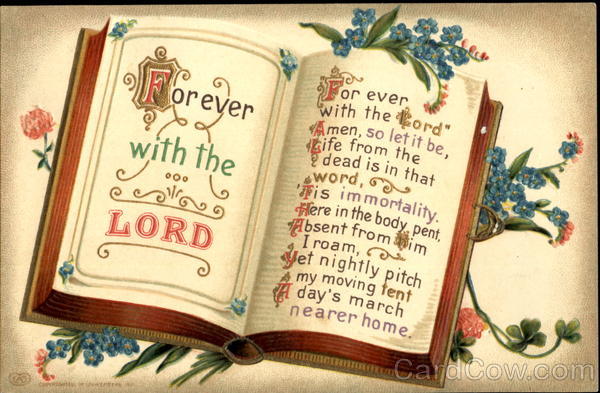 Forever
with the
LORD
For ever
with the Lord"
Amen, so let it be,
Life from the
dead is in that
word,
'Tis immortality.
Here in the body pent,
Absent from Him
I roam,
Yet nightly pitch
my moving tent
A day's march
nearer home.
CardCow.com